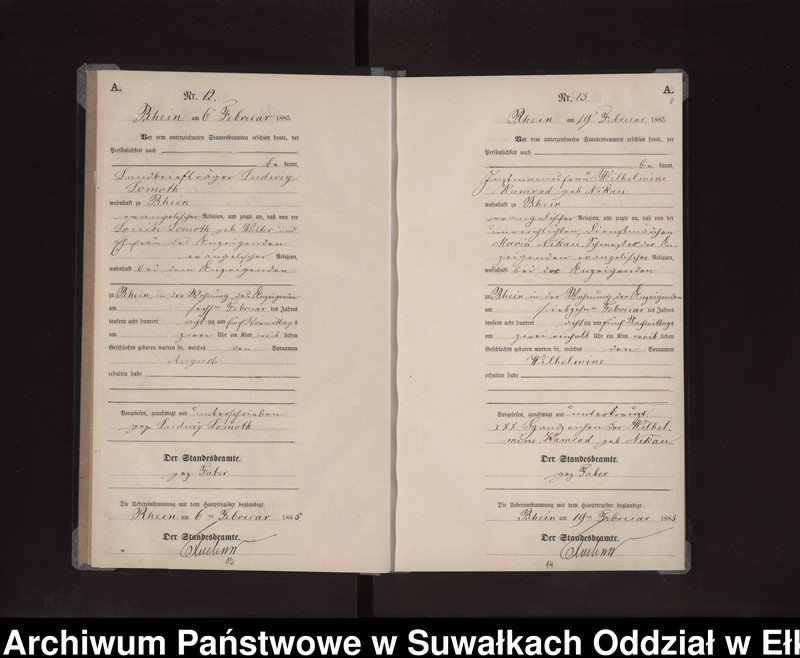 A.
Nr. 12.
Rhein am 6ten Februar 1885
Vor dem unterzeichneten Standesbeamten erschien heute, der
Persönlichkeit nach
be kannt,
Landbriefträger Ludwig
Lomoth
wohnhaft zu Rhein
evangelischer Religion, und zeigte an, daß von der
Louise Lomoth geb. und
Ehefrau des Anzeigenden
evangelischer Religion,
wohnhaft bei dem Anzeigenden
zu Rhein in der Wohnung des Anzeigenden
am sechsten Februar des Jahres
tausend acht hundert achtzig und fünf Vormittags
um zwei Uhr ein Kind weiblichen
Geschlechts geboren worden sei, welches den Vornamen
Auguste
erhalten habe
Vorgelesen, genehmigt und unterschrieben
gez. Ludwig Lomoth
Der Standesbeamte.
gez. Faber
Die Uebereinstimmung mit dem Hauptregister beglaubigt
Rhein am 6ten Februar 1885
Der Standesbeamte.
13
A.
Nr. 13
Rhein am 19ten Februar 1885
Vor dem unterzeichneten Standesbeamten erschien heute, der
Persönlichkeit nach
be kannt,
Instmannsfrau Wilhelmine
Kamrad geb. Nikau
wohnhaft zu Rhein
evangelischer Religion, und zeigte an, daß von der
unverehelichten Dienstmädchen
Maria Nikau, Schwester der An-
zeigenden evangelischer Religion,
wohnhaft bei der Anzeigenden
zu Rhein in der Wohnung der Anzeigenden
am siebzehnten Februar des Jahres
tausend acht hundert achtzig und fünf Nachmittags
um zwei einhalb Uhr ein Kind weiblichen
Geschlechts geboren worden sei, welches den Vornamen
Wilhelmine
erhalten habe
Vorgelesen, genehmigt und unterkreuzt
xxx Handzeichen der Wilhel-
mine Kamrad geb. Nikau
Der Standesbeamte.
gez. Faber
Die Uebereinstimmung mit dem Hauptregister beglaubigt
Rhein am 19ten Februar 1885
Der Standesbeamte.
14
Archiwum Państwowe w Suwałkach Oddział w Ełk